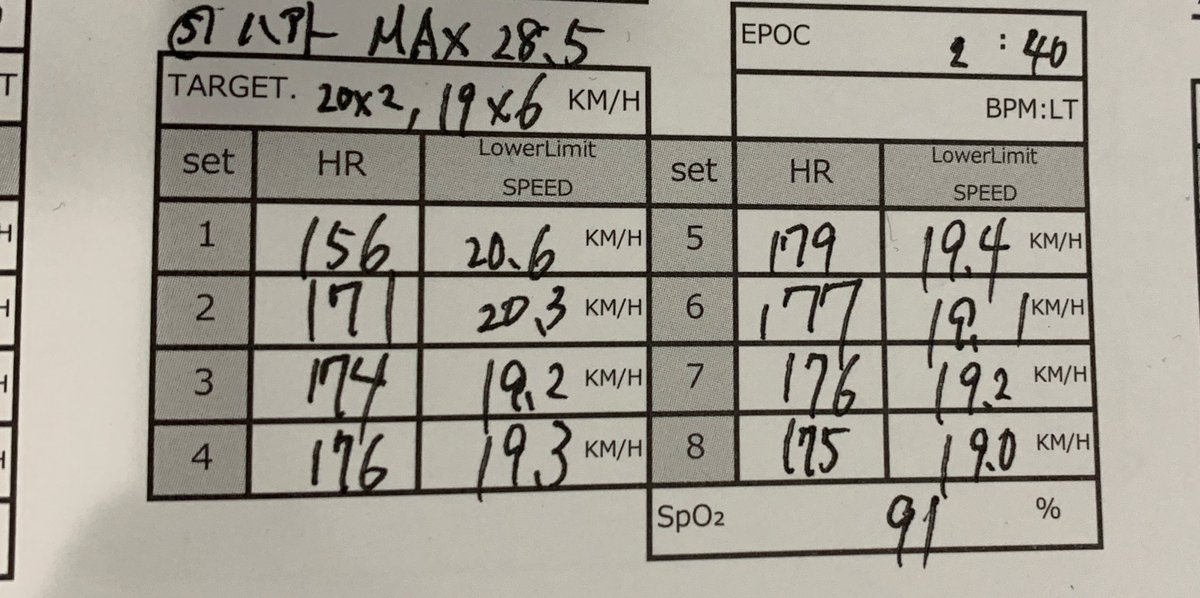 MAX 28.5
TARGET. 20×2, 19×6 KM/H
EPOC 2:40
BPM:LT
set HR LowerLimit SPEED
1 156 20.6 KM/H
2 171 20.3 KM/H
3 174 19.2 KM/H
4 176 19.3 KM/H
set HR LowerLimit SPEED
5 179 19.4 KM/H
6 177 19.1 KM/H
7 176 19.2 KM/H
8 175 19.0 KM/H
SpO2 91 %